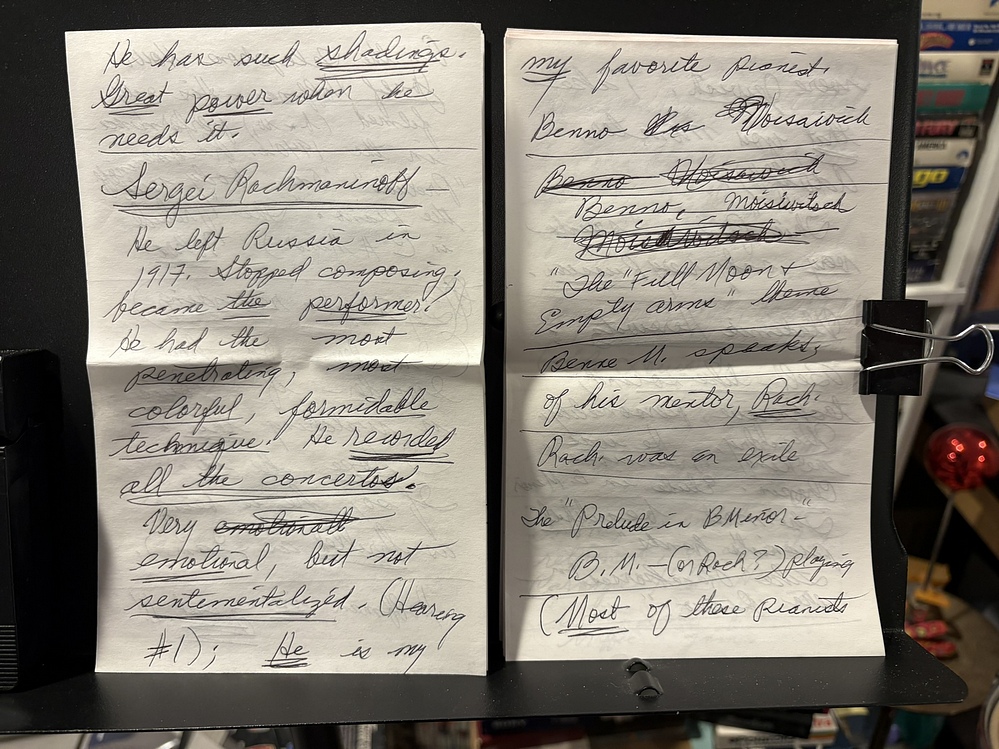 He has such shadings.
Great power when he
needs it.
Sergei Rachmaninoff —
He left Russia in
1917. Stopped composing,
became the performer!
He had the most
penetrating, most
colorful, formidable
technique. He recorded
all the concertos.
Very emotionall
emotional, but not
sentementalized. (Hearing
#1); He is my
my favorite pianist.
Benno Moisaivich
Benno Moisaivich
Benno, Moisiwitsch
"The "Full Moon &
Empty arms" theme
Benne M. speaks,
of his mentor, Rach.
Rach. was an exile
The "Prelude in B Minor —"
B.M. — (or Rach?) playing
(Most of these pianists